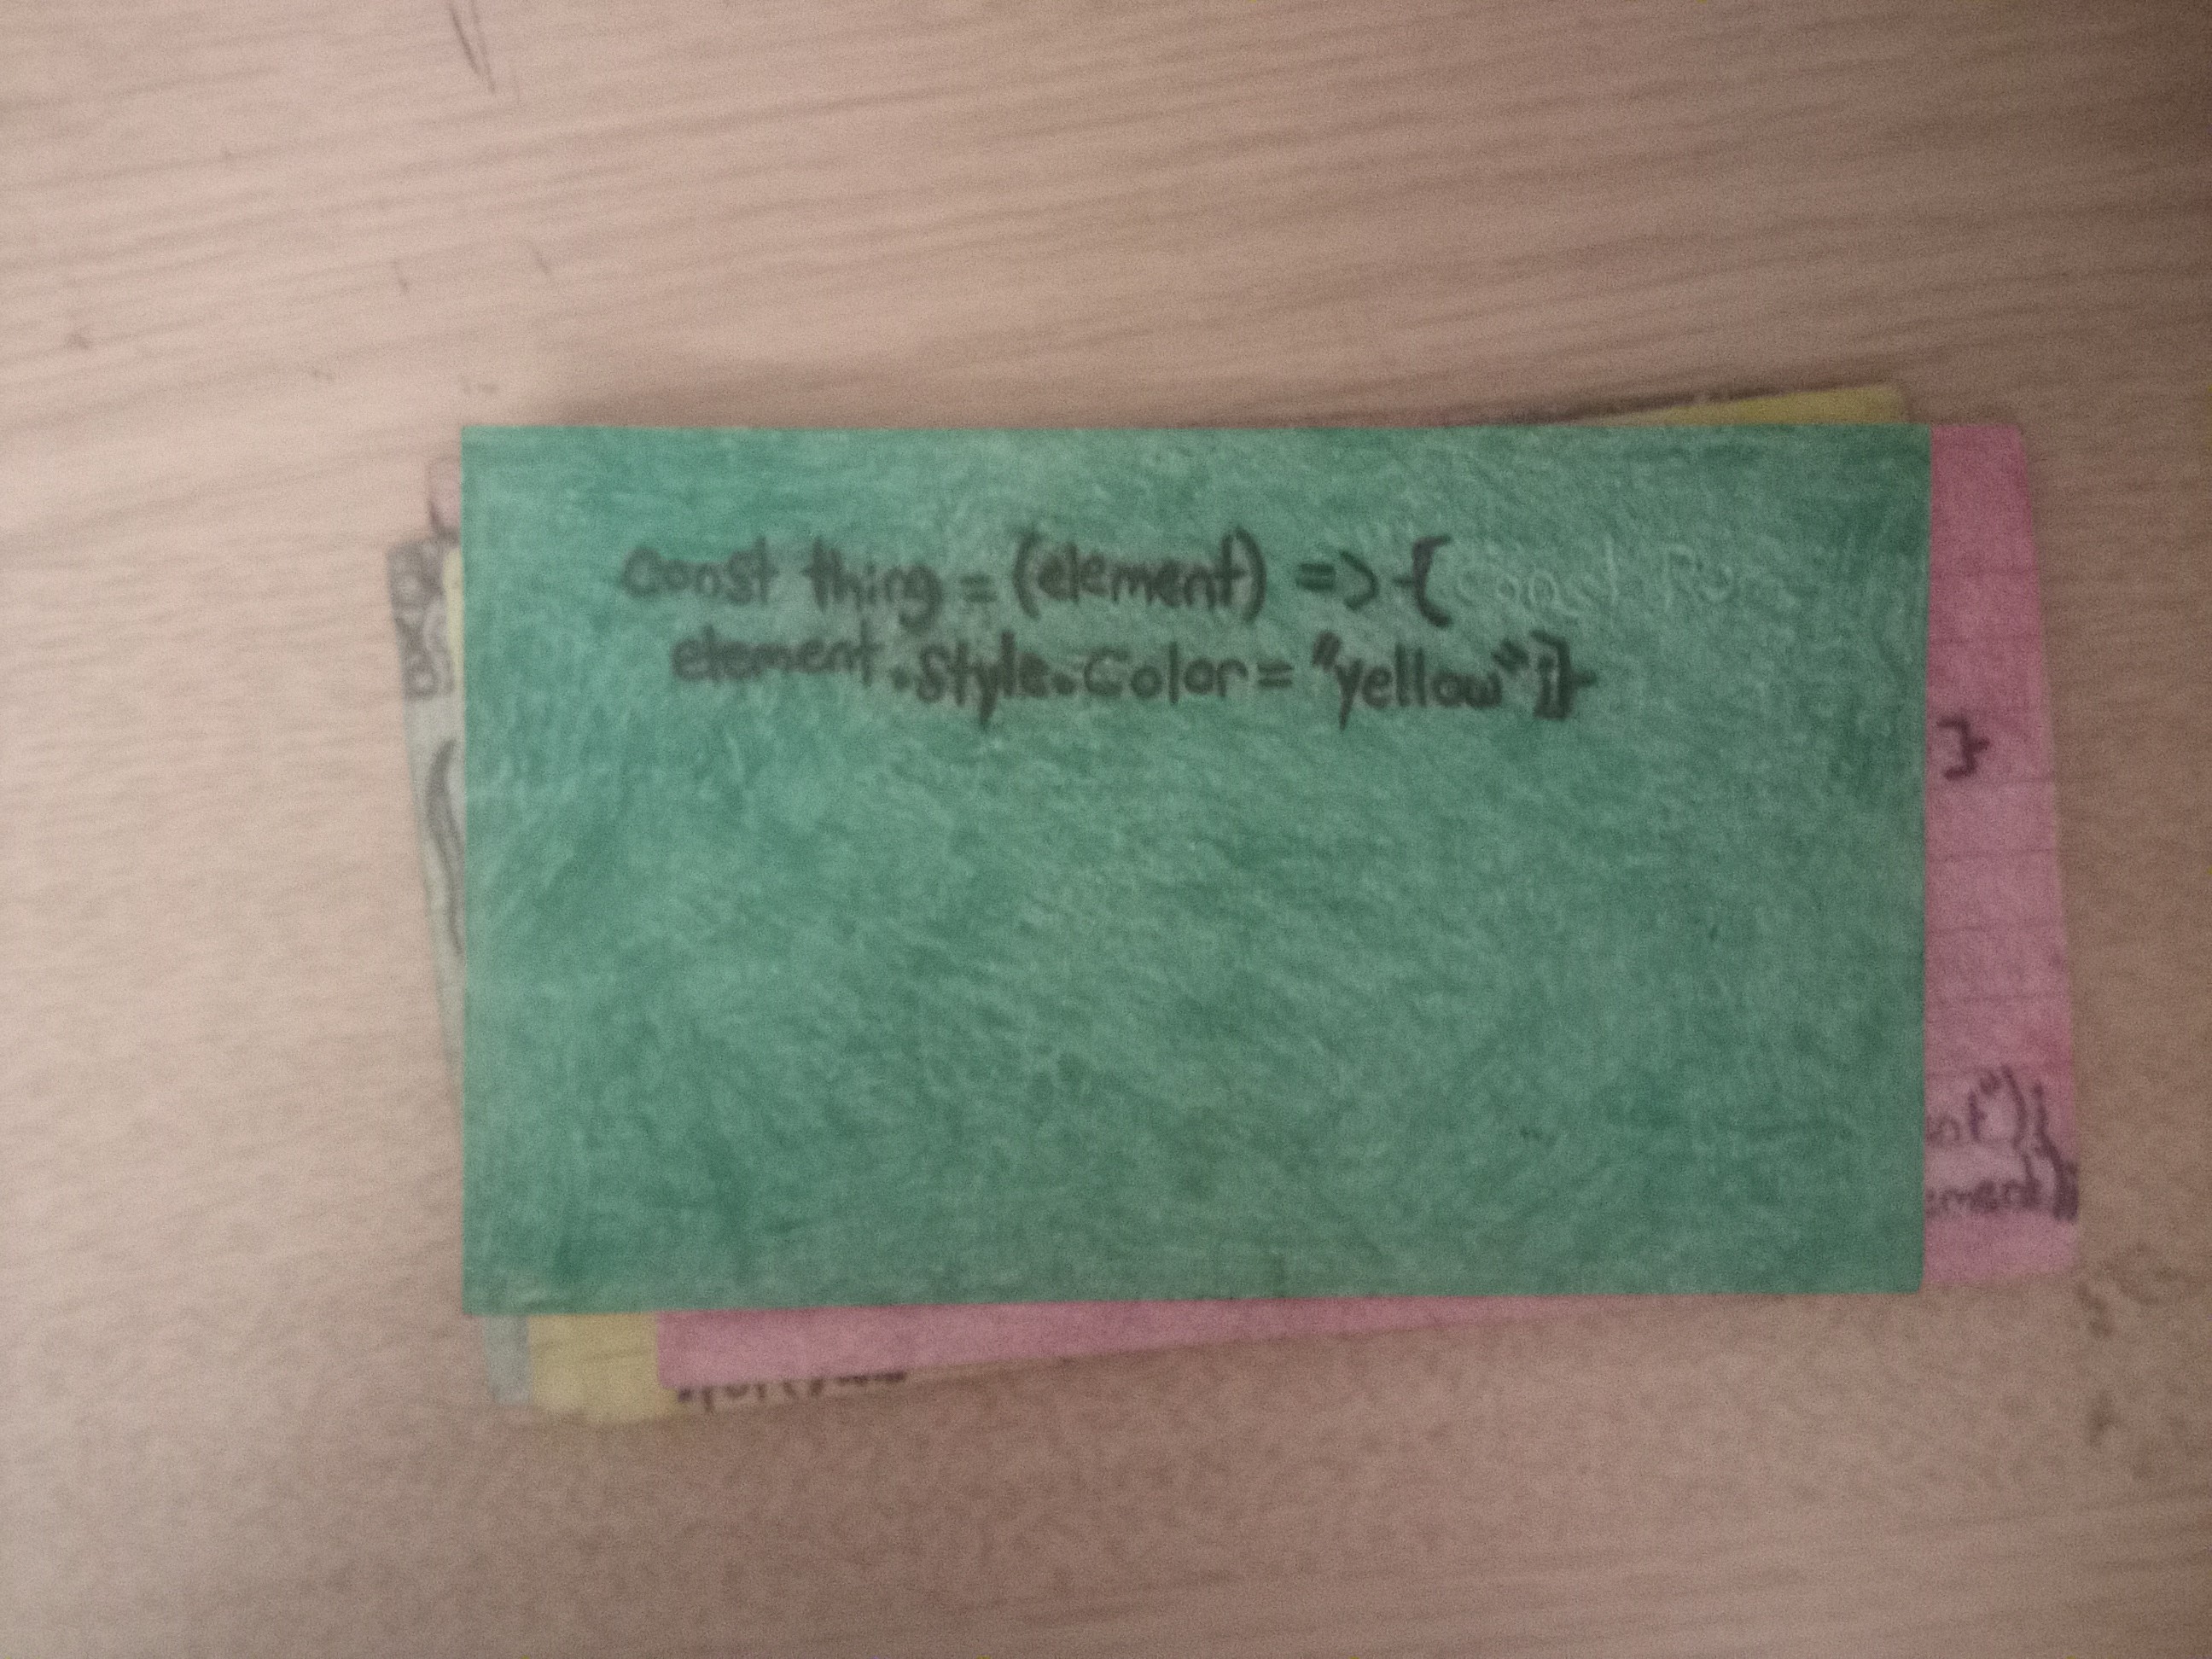 const thing = (element) => {
element.style.color = "yellow";}
}
nt");
ement);